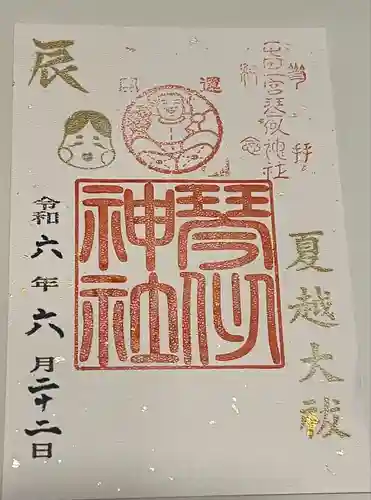 夏越大祓
参拝
琴似神社
開運
琴似
神社
辰
令和六年六月二十二日